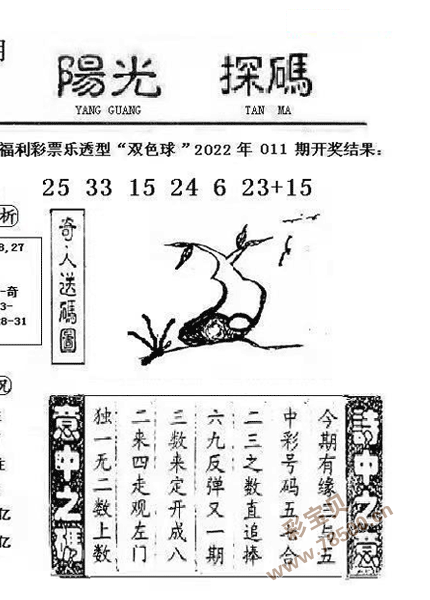 期
陽光 探碼
YANG GUANG TAN MA
福利彩票乐透型“双色球”2022年011期开奖结果:
25 33 15 24 6 23+15
析
8,27
-奇
3-
28-31
奇·人送碼圖
况
住
亿
亿
詩中之意
今期有缘三与五
中彩号码五七合
二三之数直追捧
六九反弹又一期
三数来定开成八
二来四走观左门
独一无二数上数
意中之碼
彩宝贝